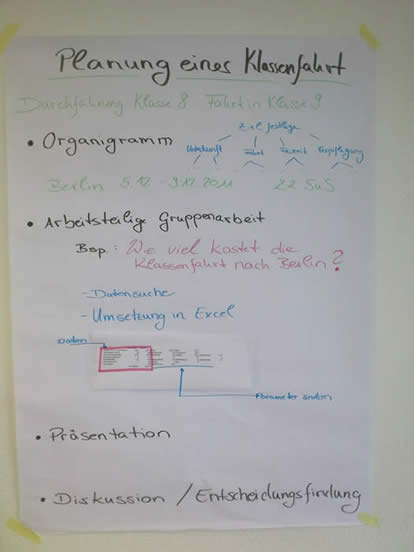 Planung eines Klassenfahrt
Durchführung Klasse 8 Fahrt in Klasse 9
• Organigramm
Ziel festlegen
Unterkunft Fahrt Freizeit Verpflegung
Berlin 5.12 - 9.12.2011 22 SuS
• Arbeitsteilige Gruppenarbeit
Bsp.: Wie viel kostet die
Klassenfahrt nach Berlin?
- Datensuche
- Umsetzung in Excel
Daten
Parameter ändern
• Präsentation
• Diskussion / Entscheidungsfindung